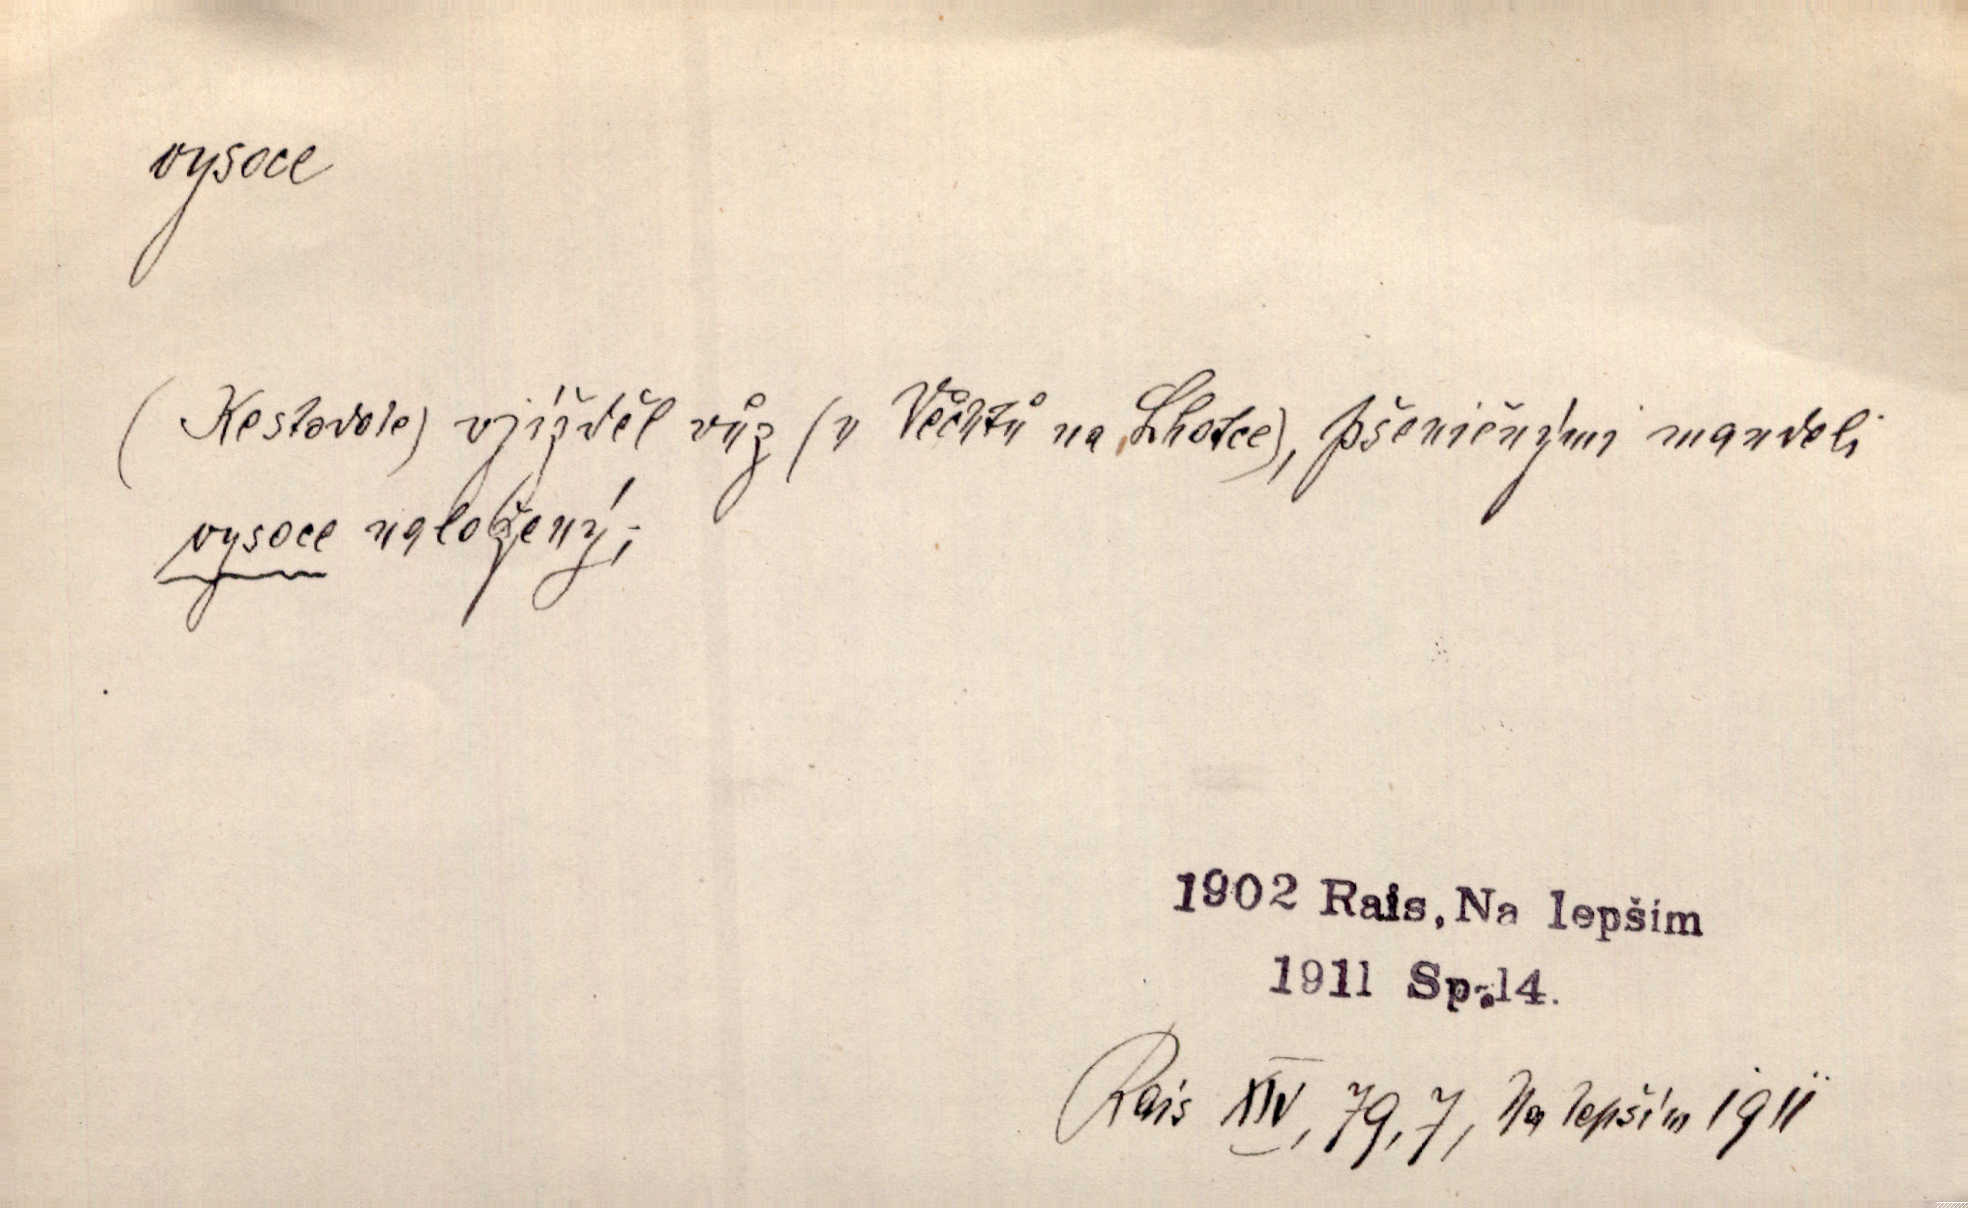 vysoce
(Ke stodole) vjížděl vůz (u Věchtů na Lhotce), pšeničnými mandeli
vysoce naložený;
1902 Rais, Na lepším
1911 Sp. 14.
Rais XIV, 79, 7, Na lepším 1911